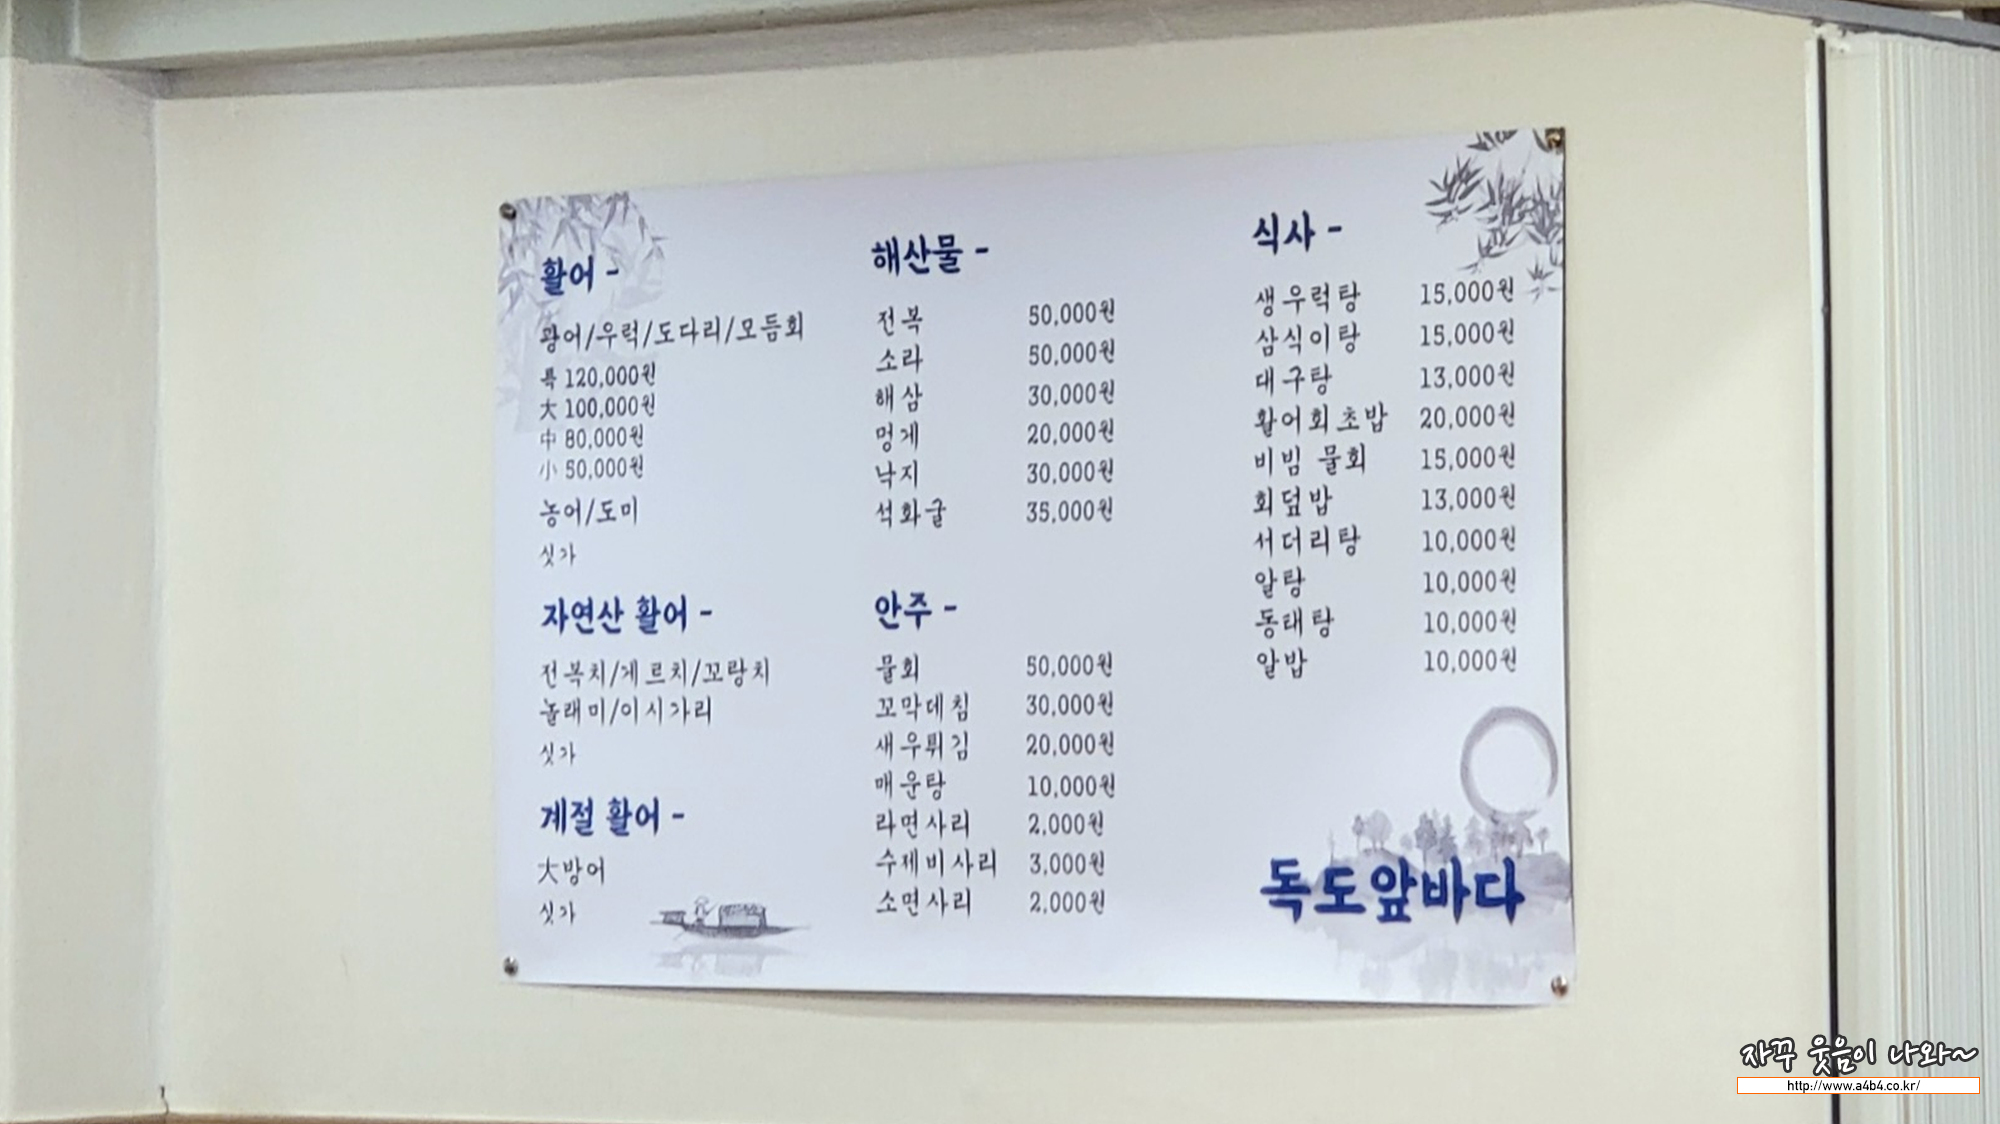 활어 -
광어/우럭/도다리/모듬회
특 120,000원
大 100,000원
中 80,000원
小 50,000원
농어/도미
싯가
자연산 활어 -
전복치/게르치/꼬랑치
놀래미/이시가리
싯가
계절 활어 -
大방어
싯가
해산물 -
전복 50,000원
소라 50,000원
해삼 30,000원
멍게 20,000원
낙지 30,000원
석화굴 35,000원
안주 -
물회 50,000원
꼬막데침 30,000원
새우튀김 20,000원
매운탕 10,000원
라면사리 2,000원
수제비사리 3,000원
소면사리 2,000원
식사 -
생우럭탕 15,000원
삼식이탕 15,000원
대구탕 13,000원
활어회초밥 20,000원
비빔 물회 15,000원
회덮밥 13,000원
서더리탕 10,000원
알탕 10,000원
동태탕 10,000원
알밥 10,000원
독도앞바다
자꾸 웃음이 나와~
http://www.a4b4.co.kr/